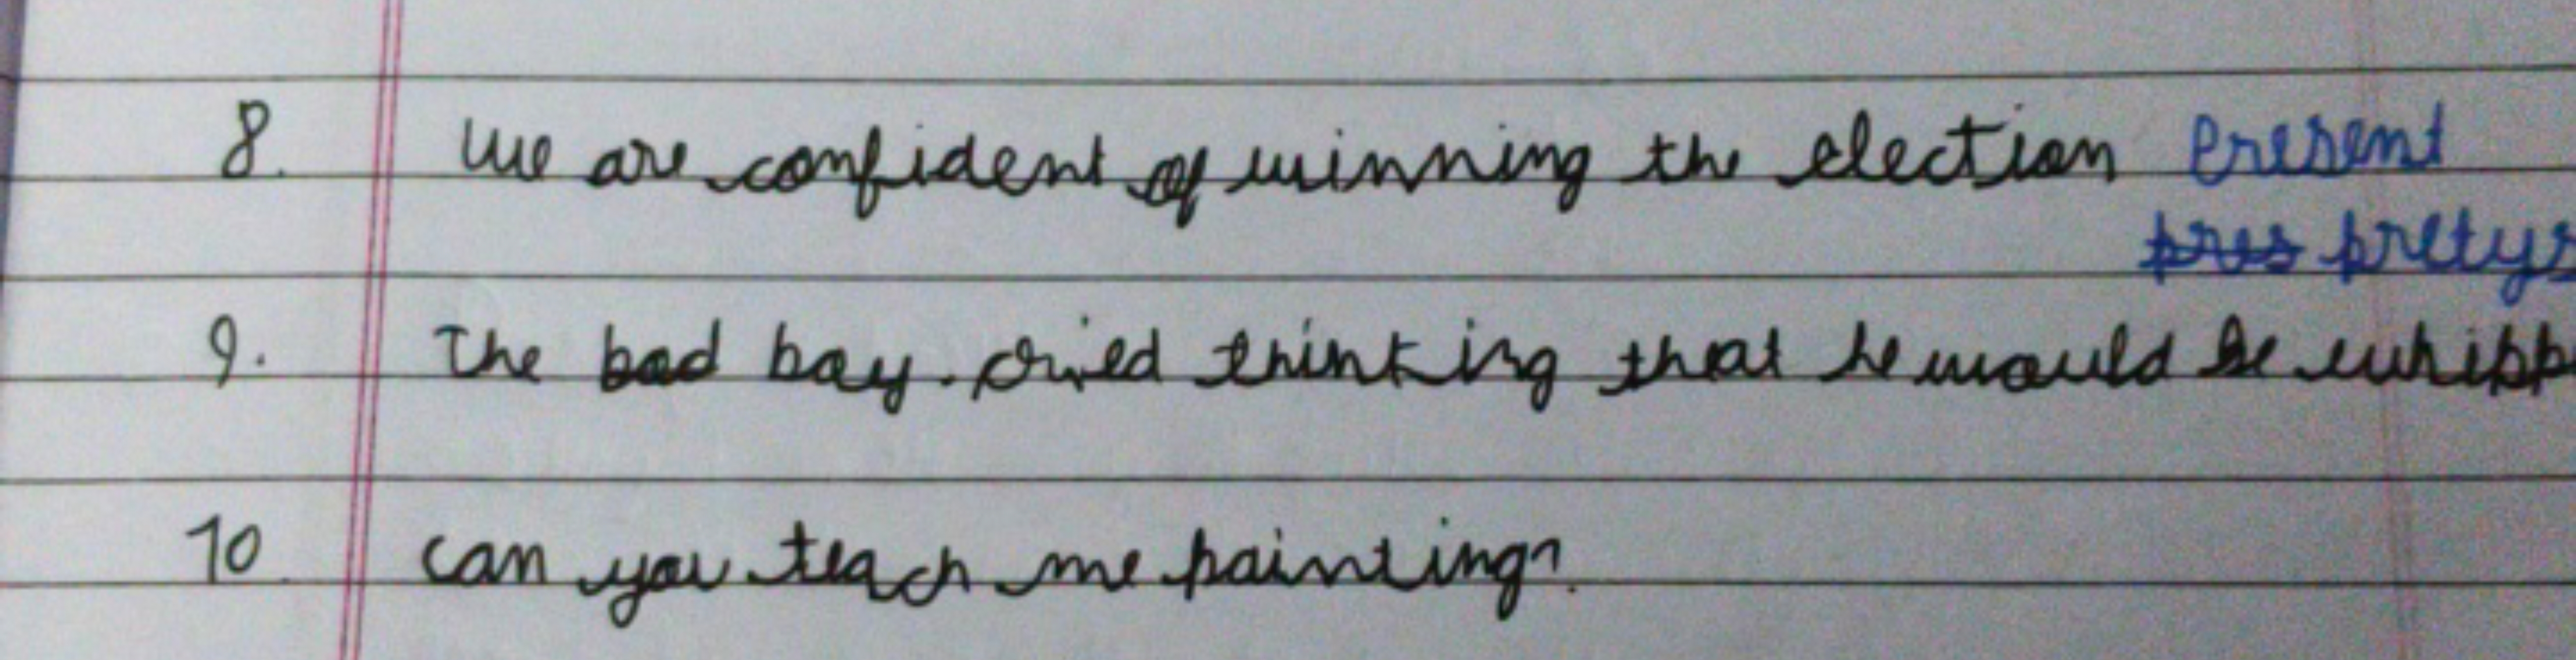 8. We are confident of winning the election Present
pres pretys
9. The bad boy. cried thinking that he would be whipp
10 can you teach me painting?